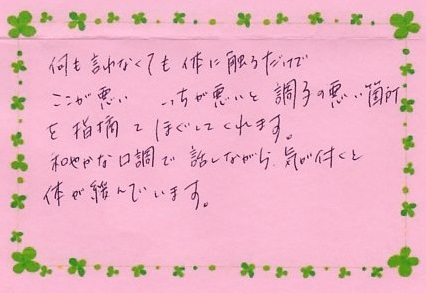 何も言わなくても体に触るだけで
ここが悪い　こっちが悪いと調子の悪い箇所
を指摘してほぐしてくれます。
和やかな口調で話しながら、気が付くと
体が緩んでいます。